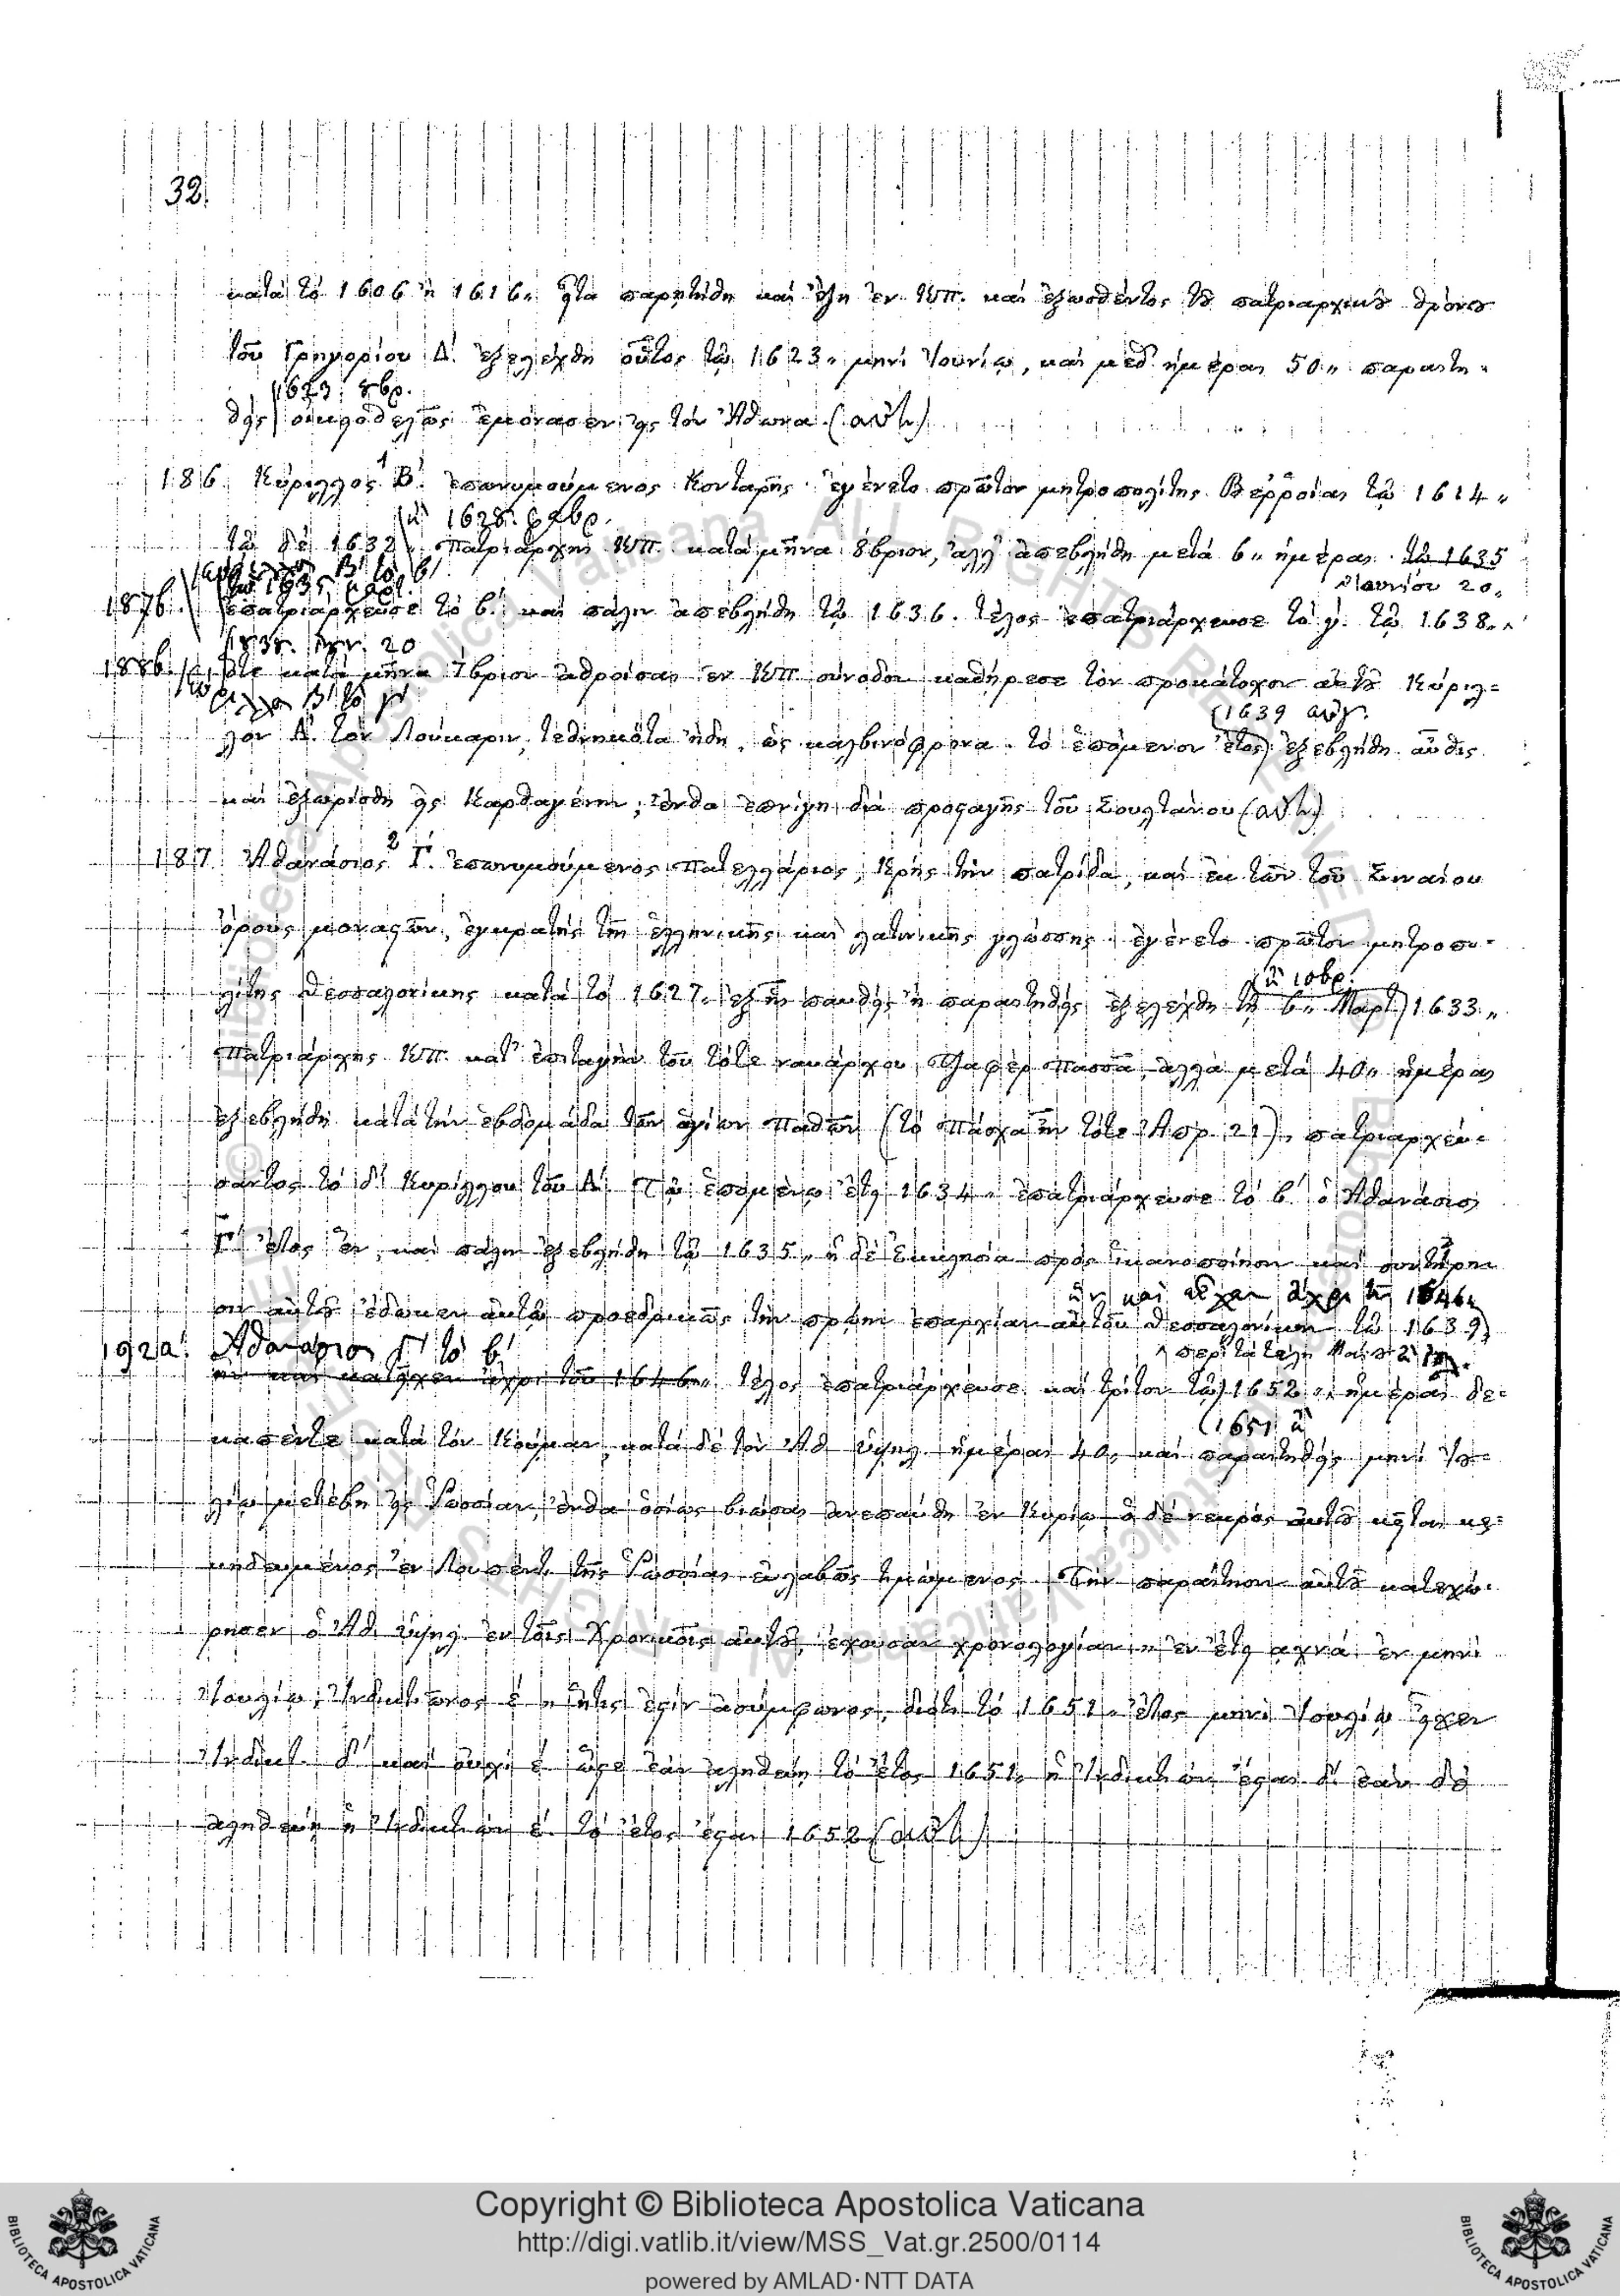 32.
κατὰ τὸ 1606 ἢ 1616„ εἶτα παρῃτήθη καὶ ἔζη ἐν Κπ. καὶ ἐξωσθέντος τȣ͂ πατριαρχικȣ͂ θρόνȣ
τοῦ Γρηγορίου Δ΄. ἐξελέχθη οὗτος τῷ 1623„ μηνὶ Ἰουνίῳ, καὶ μεθ' ἡμέρας 50„ παραιτη-
1623. 8βρ.
θεὶς οἰκειοθελῶς ἐμόνασεν εἰς τὸν Ἄθωνα (αὐτ)
186. Κύριλλος Β΄. ἐπονομούμενος Κονταρῆς ἐγένετο πρῶτον μητροπολίτης Βεῤῥοίας τῷ 1614„
τῷ δὲ 1632 πατριάρχης Κπ. κατὰ μῆνα 8βριον, ἀλλ' ἀπεβλήθη μετὰ 6„ ἡμέρας. τῷ 1635
Ἰουνίου 20„
187b. ἐπατριάρχευσε τὸ β΄. καὶ πάλιν ἀπεβλήθη τῷ 1636. τέλος ἐπατριάρχευσε τὸ γ΄. τῷ 1638„
20
188b. ὅτε κατὰ μῆνα 7βριον ἀθροίσας ἐν Κπ. σύνοδον καθῄρεσε τὸν προκάτοχον αὐτȣ͂ Κύριλ-
(1639
λον Α΄. τὸν Λούκαριν, τεθνηκότα ἤδη, ὡς καλβινόφρονα. τὸ ἑπόμενον ἔτος) ἐξεβλήθη αὖθις
καὶ ἐξωρίσθη εἰς Καρθαγένην, ἔνθα ἐπνίγη διὰ προσταγῆς τοῦ Σουλτάνου (αὐτ)
187. Ἀθανάσιος Γ΄. ἐπονομούμενος Πατελλάριος, Κρὴς τὴν πατρίδα, καὶ ἐκ τῶν τοῦ Σιναίου
ὄρους μοναστῶν, ἐγκρατὴς τῆς ἑλληνικῆς καὶ λατινικῆς γλώσσης. ἐγένετο πρῶτον μητροπο-
λίτης Θεσσαλονίκης κατὰ τὸ 1627„ ἐξ ἧς παυθεὶς ἢ παραιτηθεὶς ἐξελέχθη τῇ 6„ Μαρτ) 1633„
πατριάρχης Κπ. κατ' ἐπιταγὴν τοῦ τότε ναυάρχου Τζαφὲρ Πασσᾶ, ἀλλὰ μετὰ 40„ ἡμέρας
ἐξεβλήθη κατὰ τὴν ἑβδομάδα τῶν ἁγίων Παθῶν (τὸ Πάσχα ἦν τότε Ἀπρ. 21), πατριαρχεύ-
σαντος τὸ δ΄ Κυρίλλου τοῦ Α΄. Τῷ ἑπομένῳ ἔτει 1634„ ἐπατριάρχευσε τὸ β΄ ὁ Ἀθανάσιος
Γ΄ ἔτος ἕν, καὶ πάλιν ἐξεβλήθη τῷ 1635„ ἡ δὲ Ἐκκλησία πρὸς ἱκανοποίησιν καὶ συντήρη-
ἣν καὶ εἶχεν ἄχρι τοῦ 1646„
σιν αὐτȣ͂ ἔδωκεν αὐτῷ προεδρικῶς τὴν πρώην ἐπαρχίαν αὐτοῦ Θεσσαλονίκην τῷ 1639,
192a. Ἀθανάσιος Γ΄ τὸ β΄
περὶ τὰ τέλη
ἣν καὶ κατεῖχεν ἄχρι τοῦ 1646„ τέλος ἐπατριάρχευσε καὶ τρίτον τῷ) 1652„ ἡμέρας δε-
(1651
καπέντε κατὰ τὸν Κούμαν, κατὰ δὲ τὸν Ἀθ. Ὑψηλ. ἡμέρας 40„ καὶ παραιτηθεὶς μηνὶ Ἰȣ-
λίῳ μετέβη εἰς Ῥωσσίαν, ἔνθα ὁσίως βιώσας ἀνεπαύθη ἐν Κυρίῳ, ὁ δὲ νεκρὸς αὐτȣ͂ κεῖται κε-
κηδευμένος ἐν Λουπέντι τῆς Ῥωσσίας εὐλαβῶς τιμώμενος. Τὴν παραίτησιν αὐτȣ͂ κατεχώ-
ρησεν ὁ Ἀθ. Ὑψηλ. ἐν τοῖς Χρονικοῖς αὐτȣ͂, ἔχουσαν χρονολογίαν „ἐν ἔτει αχνά ἐν μηνὶ
Ἰουλίῳ, Ἰνδικτιῶνος ε΄„ ἥτις ἐστὶν ἀσύμφωνος, διότι τὸ 1651„ ἔτος μηνὶ Ἰουλίῳ εἶχεν
Ἰνδικτ. δ΄ καὶ οὐχὶ ε΄ ὥστε ἐὰν ἀληθεύῃ τὸ ἔτος 1651„ ἡ Ἰνδικτιὼν ἔσται δ΄. ἐὰν δὲ
ἀληθεύῃ ἡ Ἰνδικτιὼν ε΄. τὸ ἔτος ἔσται 1652 (αὐτ)
Copyright © Biblioteca Apostolica Vaticana
http://digi.vatlib.it/view/MSS_Vat.gr.2500/0114
powered by AMLAD·NTT DATA
BIBLIOTECA APOSTOLICA VATICANA
BIBLIOTECA APOSTOLICA VATICANA